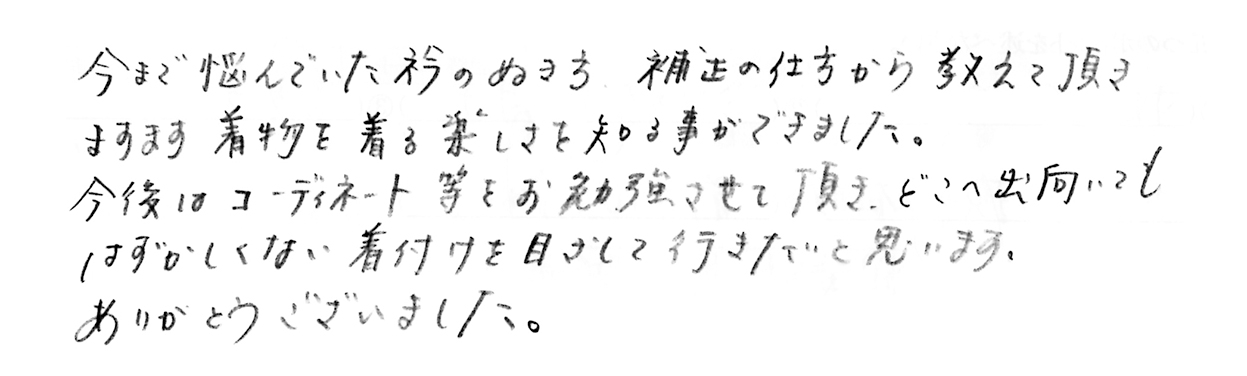 今まで悩んでいた衿のぬき方、補正の仕方から教えて頂き
ますます着物を着る楽しさを知る事ができました。
今後はコーディネート等をお勉強させて頂き、どこへ出向いても
はずかしくない着付けを目ざして行きたいと思います。
ありがとうございました。